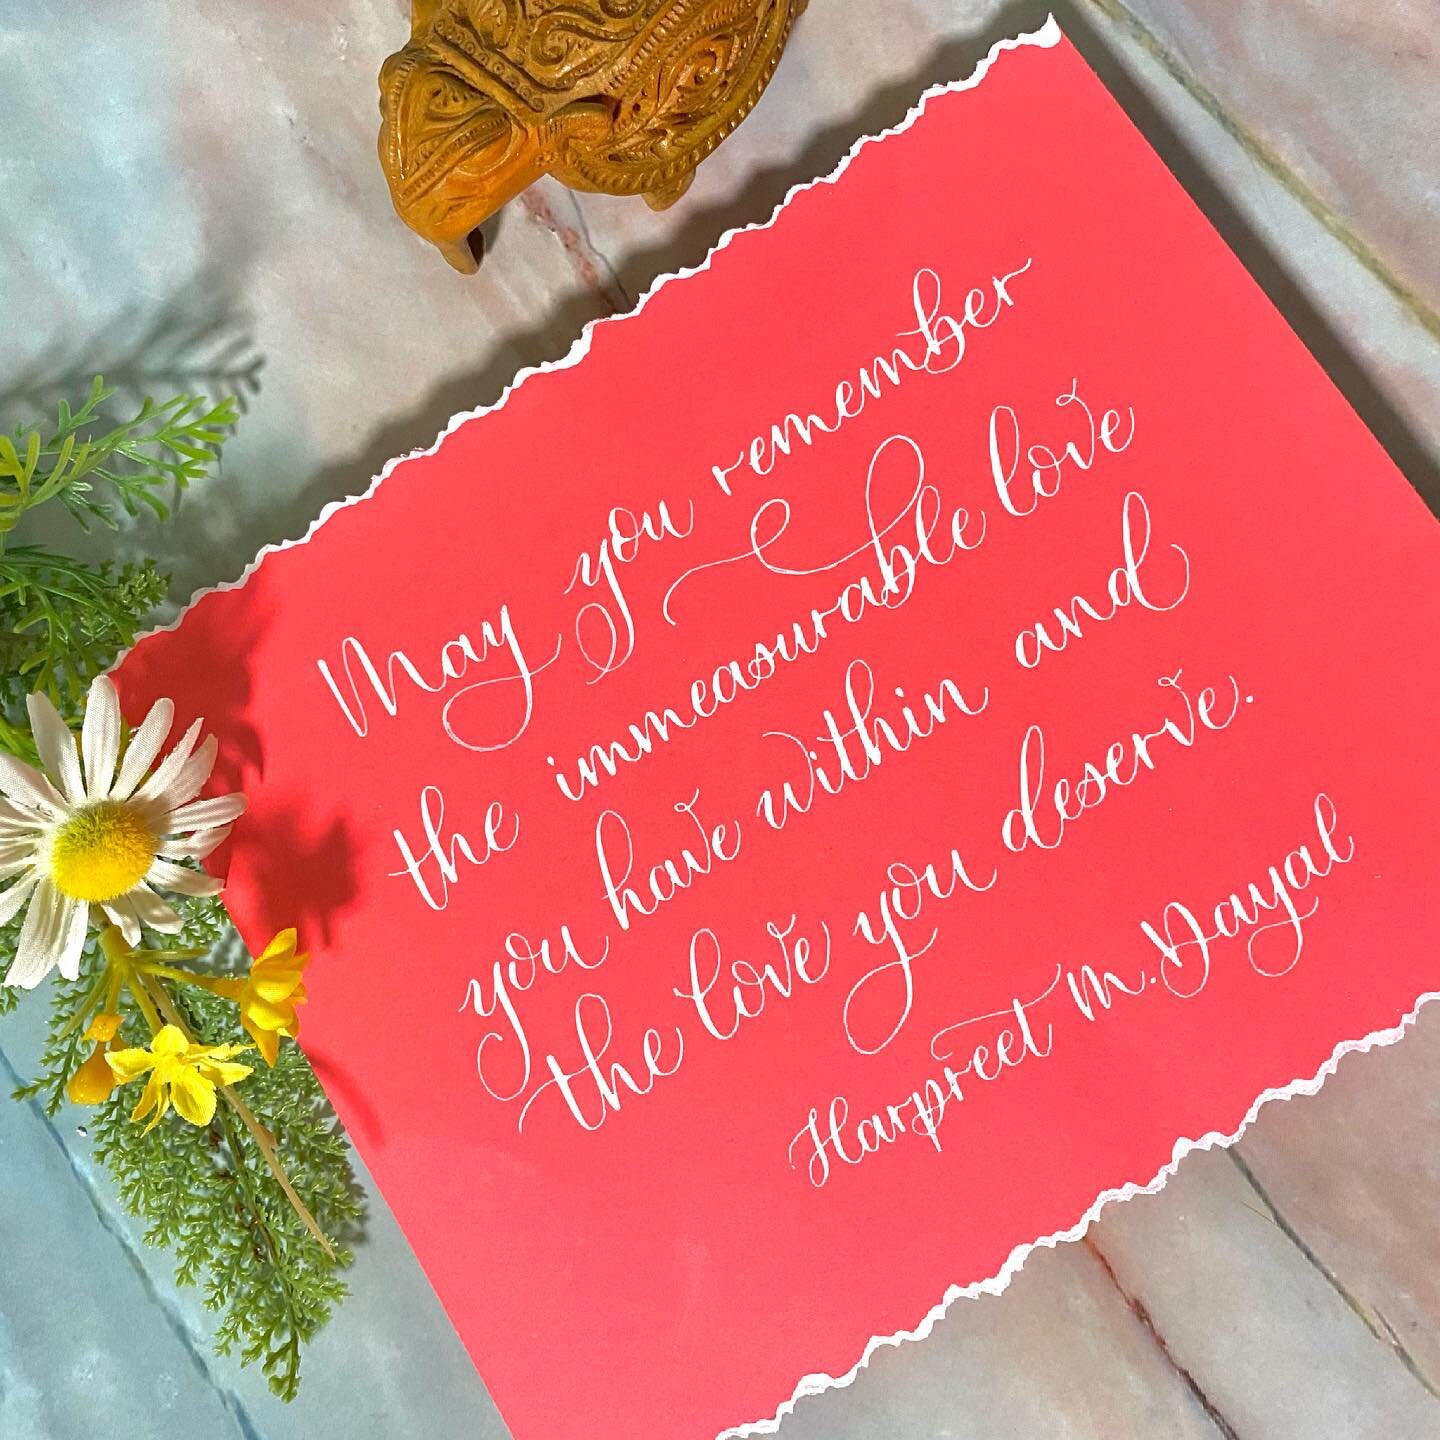 May you remember
the immeasurable love
you have within and
the love you deserve.
Harpreet M. Dayal